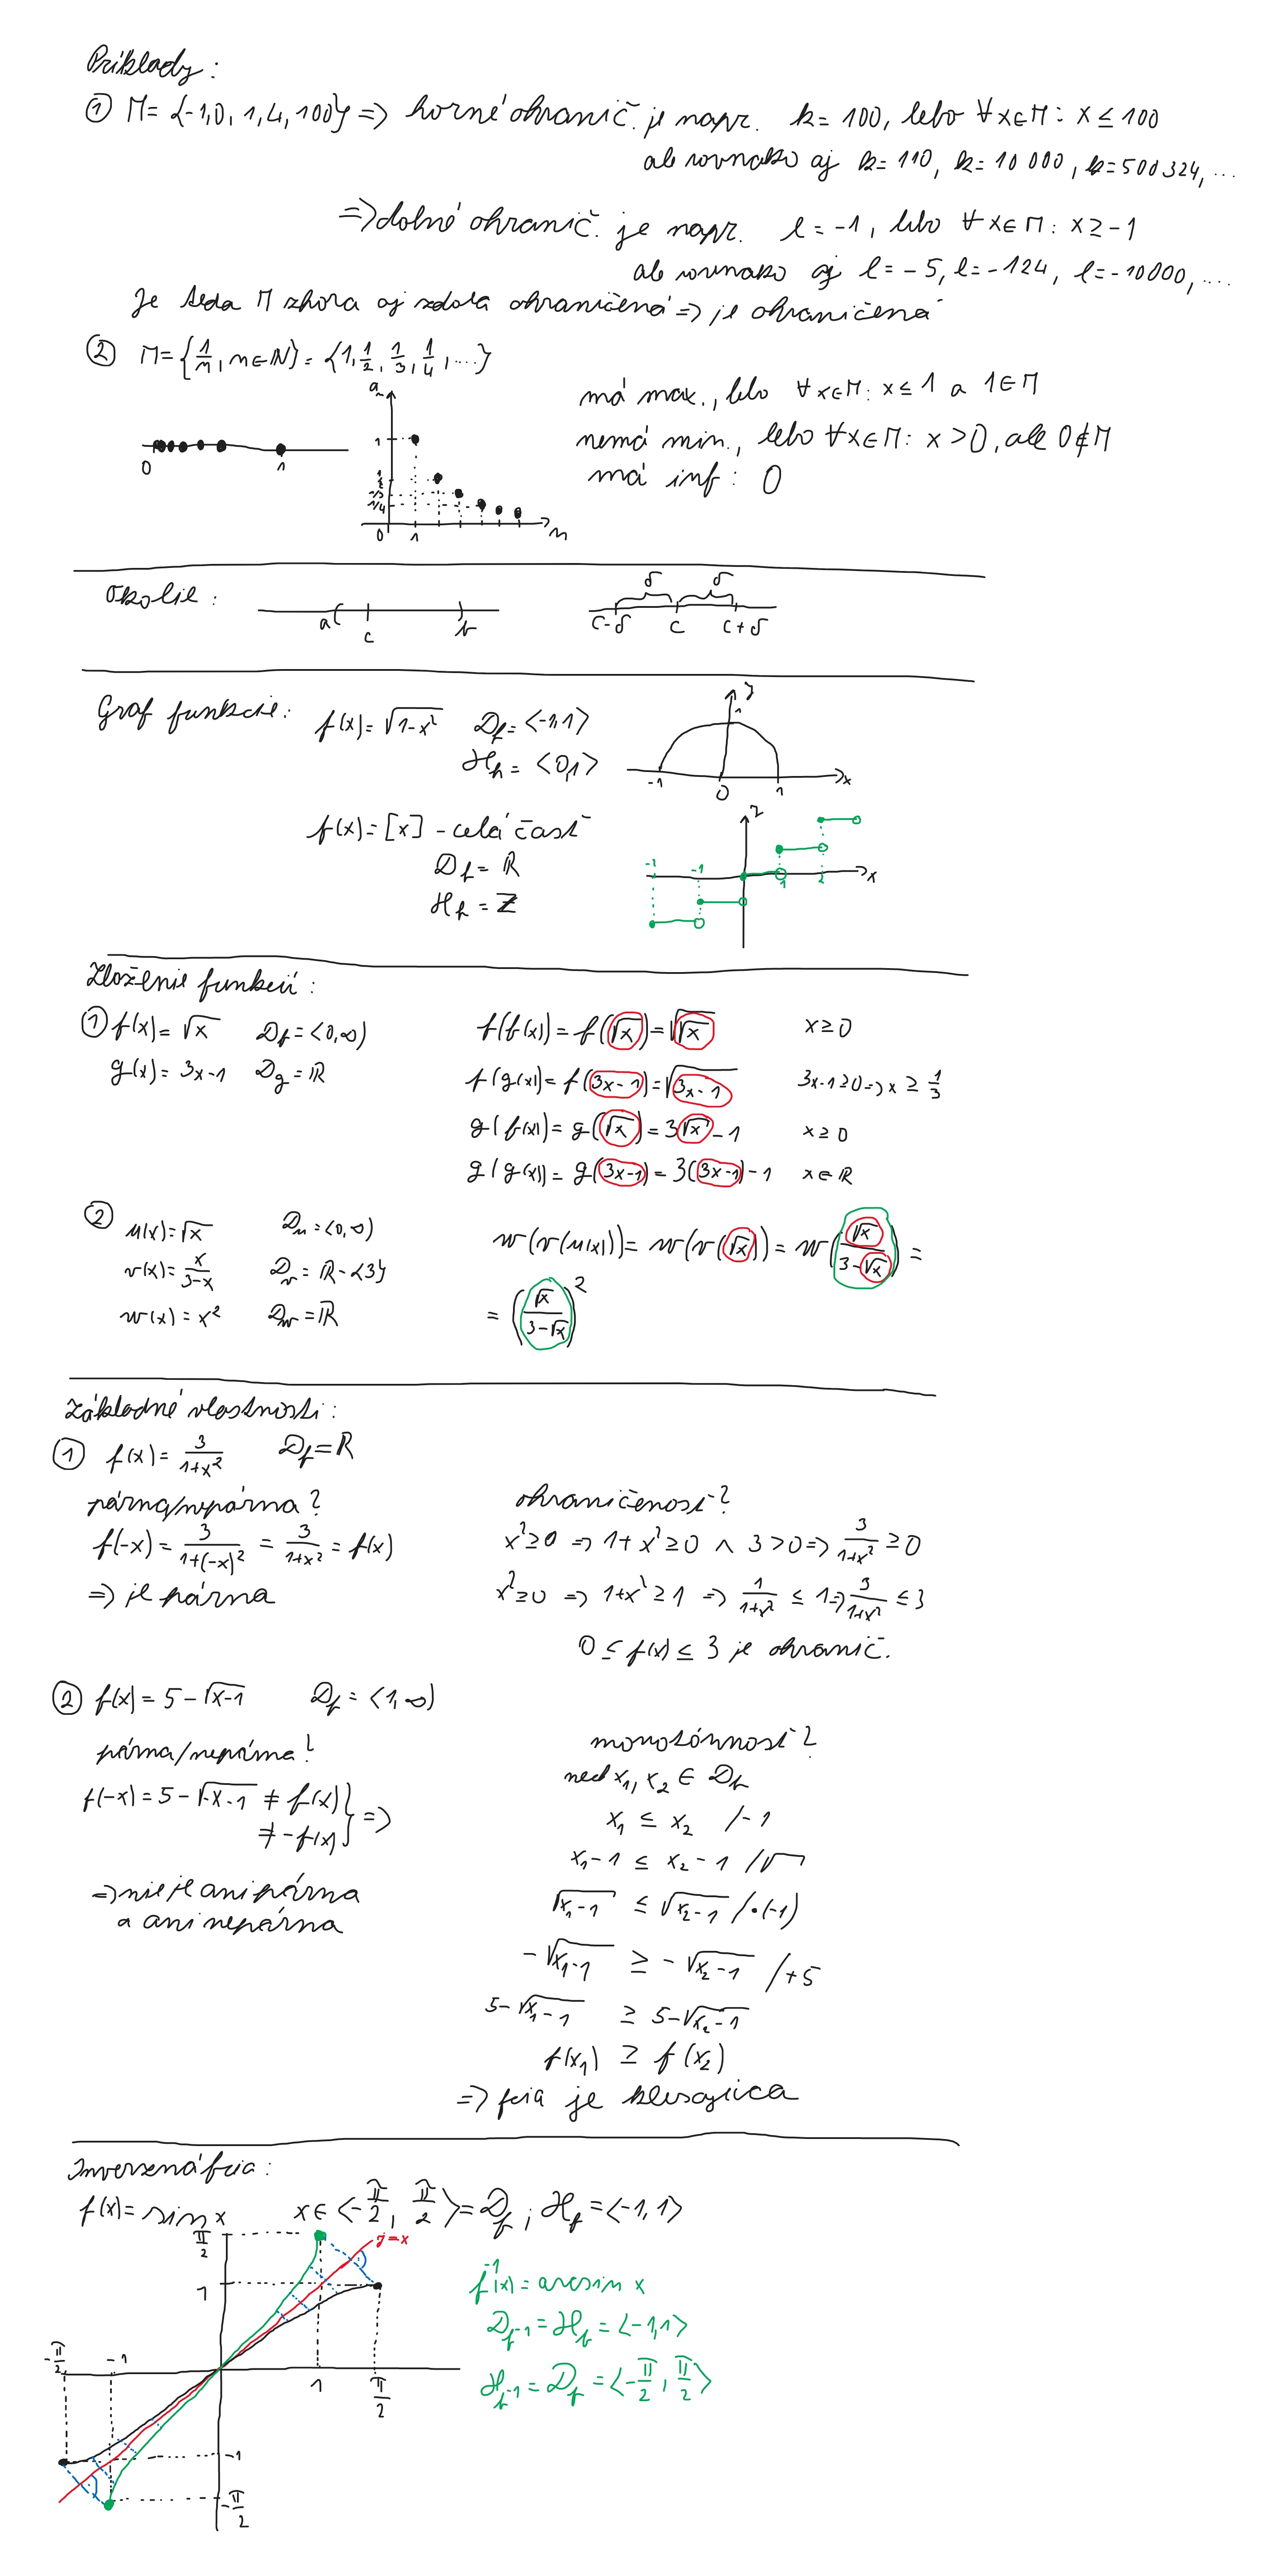 Príklady:
① M = {-1, 0, 1, 4, 100} => horné ohranič. je napr. k = 100, lebo ∀x∈M: x ≤ 100
ale rovnako aj k = 110, k = 10 000, k = 500 324, ...
=> dolné ohranič. je napr. l = -1, lebo ∀x∈M: x ≥ -1
ale rovnako aj l = -5, l = -124, l = -10000, ...
Je teda M zhora aj zdola ohraničená => je ohraničená
② M = {1/n, n∈N} = {1, 1/2, 1/3, 1/4, ...}
má max., lebo ∀x∈M: x ≤ 1 a 1∈M
nemá min., lebo ∀x∈M: x > 0, ale 0∉M
má inf: 0
0 1
a_n
1
1/2
1/3
1/4
0 1 n
Okolie:
a c b
δ δ
c-δ c c+δ
Graf funkcie: f(x) = √(1-x²) D_f = <-1,1>
H_h = <0,1>
y
1
-1 0 1 x
f(x) = [x] - celá časť
D_f = R
H_f = Z
-1 -1 1 2 x
Zloženie funkcií:
① f(x) = √x D_f = <0,∞) f(f(x)) = f(√x) = √√x x ≥ 0
g(x) = 3x-1 D_g = R f(g(x)) = f(3x-1) = √(3x-1) 3x-1≥0 => x ≥ 1/3
g(f(x)) = g(√x) = 3√x - 1 x ≥ 0
g(g(x)) = g(3x-1) = 3(3x-1)-1 x∈R
② u(x) = √x D_u = <0,∞) w(v(u(x))) = w(v(√x)) = w(√x/(3-√x)) =
v(x) = x/(3-x) D_v = R-{3}
w(x) = x² D_w = R = (√x/(3-√x))²
Základné vlastnosti:
① f(x) = 3/(1+x²) D_f = R
párna/nepárna?
f(-x) = 3/(1+(-x)²) = 3/(1+x²) = f(x)
=> je párna
ohraničenosť?
x²≥0 => 1+x²≥0 ∧ 3>0 => 3/(1+x²) ≥ 0
x²≥0 => 1+x²≥1 => 1/(1+x²) ≤ 1 => 3/(1+x²) ≤ 3
0 ≤ f(x) ≤ 3 je ohranič.
② f(x) = 5-√(x-1) D_f = <1,∞)
párna/nepárna?
f(-x) = 5-√(-x-1) ≠ f(x)} =>
≠ -f(x)
=> nie je ani párna
a ani nepárna
monotónnosť?
nech x₁, x₂ ∈ D_f
x₁ ≤ x₂ /-1
x₁-1 ≤ x₂-1 /√
√(x₁-1) ≤ √(x₂-1) /·(-1)
-√(x₁-1) ≥ -√(x₂-1) /+5
5-√(x₁-1) ≥ 5-√(x₂-1)
f(x₁) ≥ f(x₂)
=> fcia je klesajúca
Inverzná fcia:
f(x) = sin x x∈<-π/2, π/2> = D_f ; H_f = <-1,1>
π/2
y=x
1
-π/2 -1
1 π/2
-1
-π/2
f⁻¹(x) = arcsin x
D_f⁻¹ = H_f = <-1,1>
H_f⁻¹ = D_f = <-π/2, π/2>